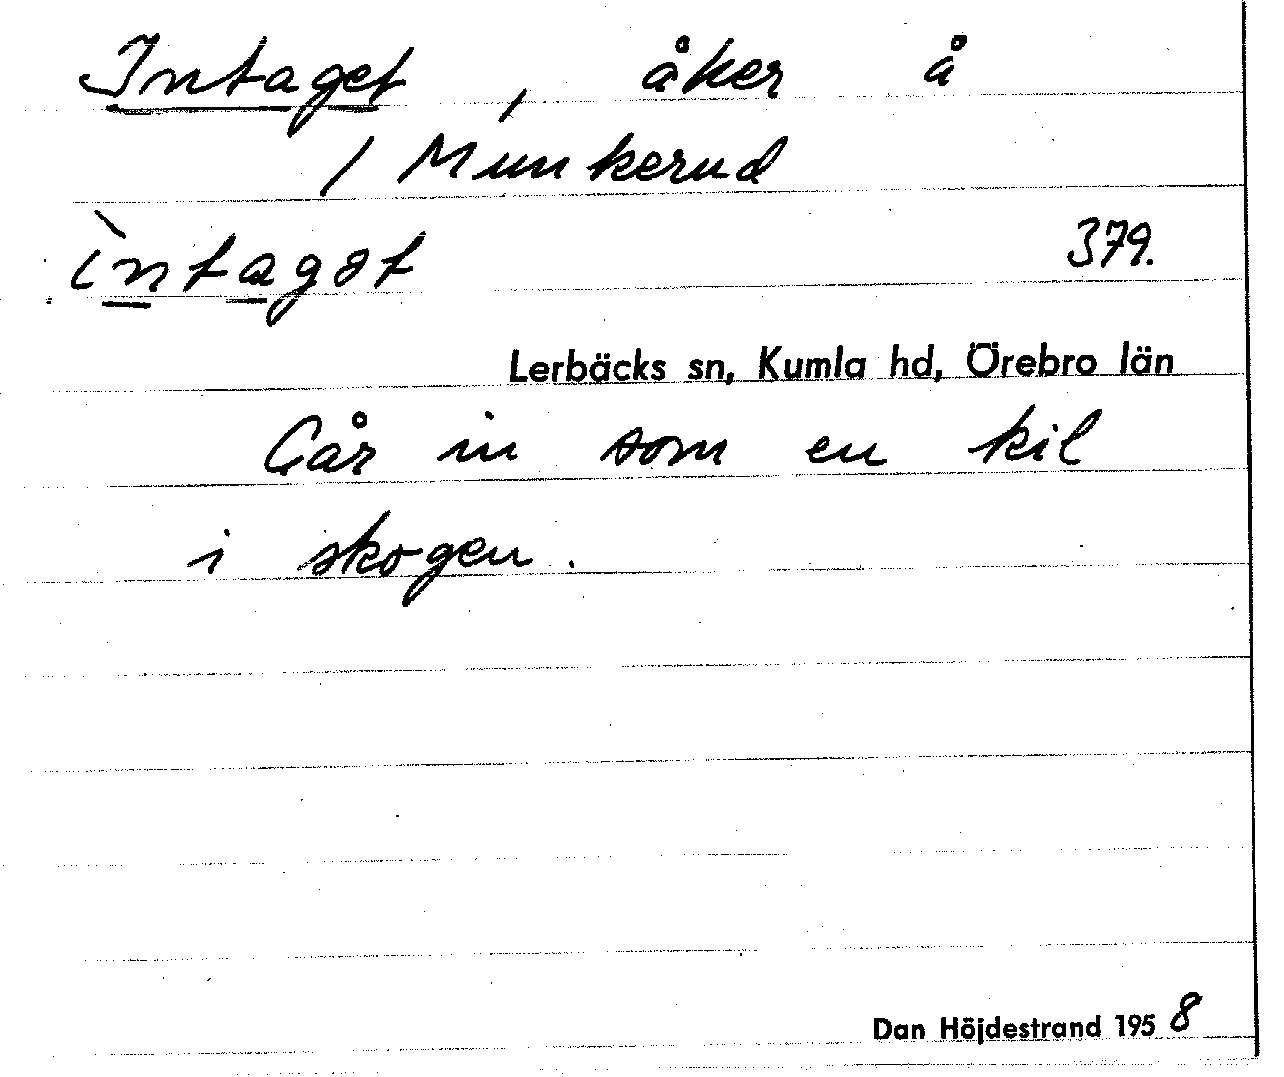 Intaget, åker å
/ Munkerud
ìntagət 379.
Lerbäcks sn, Kumla hd, Örebro län
Går in som en kil
i skogen.
Dan Höjdestrand 1958